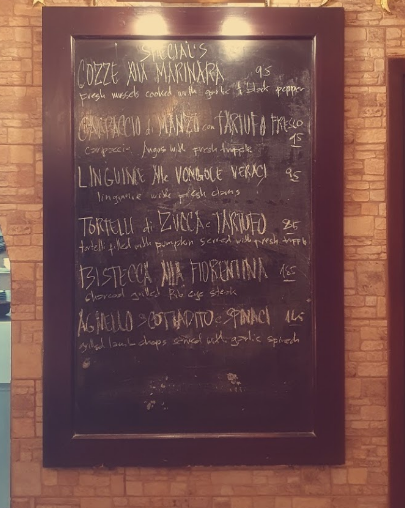 SPECIAL'S
COZZE Alla MARINARA 95
Fresh mussels cooked with garlic & black pepper
CARPACCIO di MANZO con TARTUFO FRESCO
Carpaccio Angus with fresh truffle 15
LINGUINE Alle VONGOLE VERACI 95
linguine with fresh clams
TORTELLI di ZUCCA e TARTUFO
tortelli filled with pumpkin served with fresh truffle
BISTECCA Alla FIORENTINA
charcoal grilled Rib eye steak
AGNELLO SCOTTADITO e SPINACI
grilled lamb chops served with garlic spinach